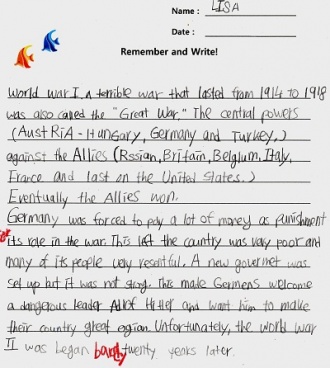 Name : LISA
Date :
Remember and Write!
World war I, a terrible war that lasted from 1914 to 1918
was also called the "Great War." The central powers
(AustRiA - Hungary, Germany and Turkey,)
against the Allies (Rssian, Britain, Belgium, Italy,
France and last on the United States.)
Eventually the Allies won.
Germany was forced to pay a lot of money as punishment
its role in the war. This left the country was very poor and
many of its people very resentful. A new governmet was
set up but it was not strong. This made Germens welcome
a dangerous leader Adlof Hitler and want him to make
their country great agian. Unfortunately, the world war
II was began barely twenty years later.